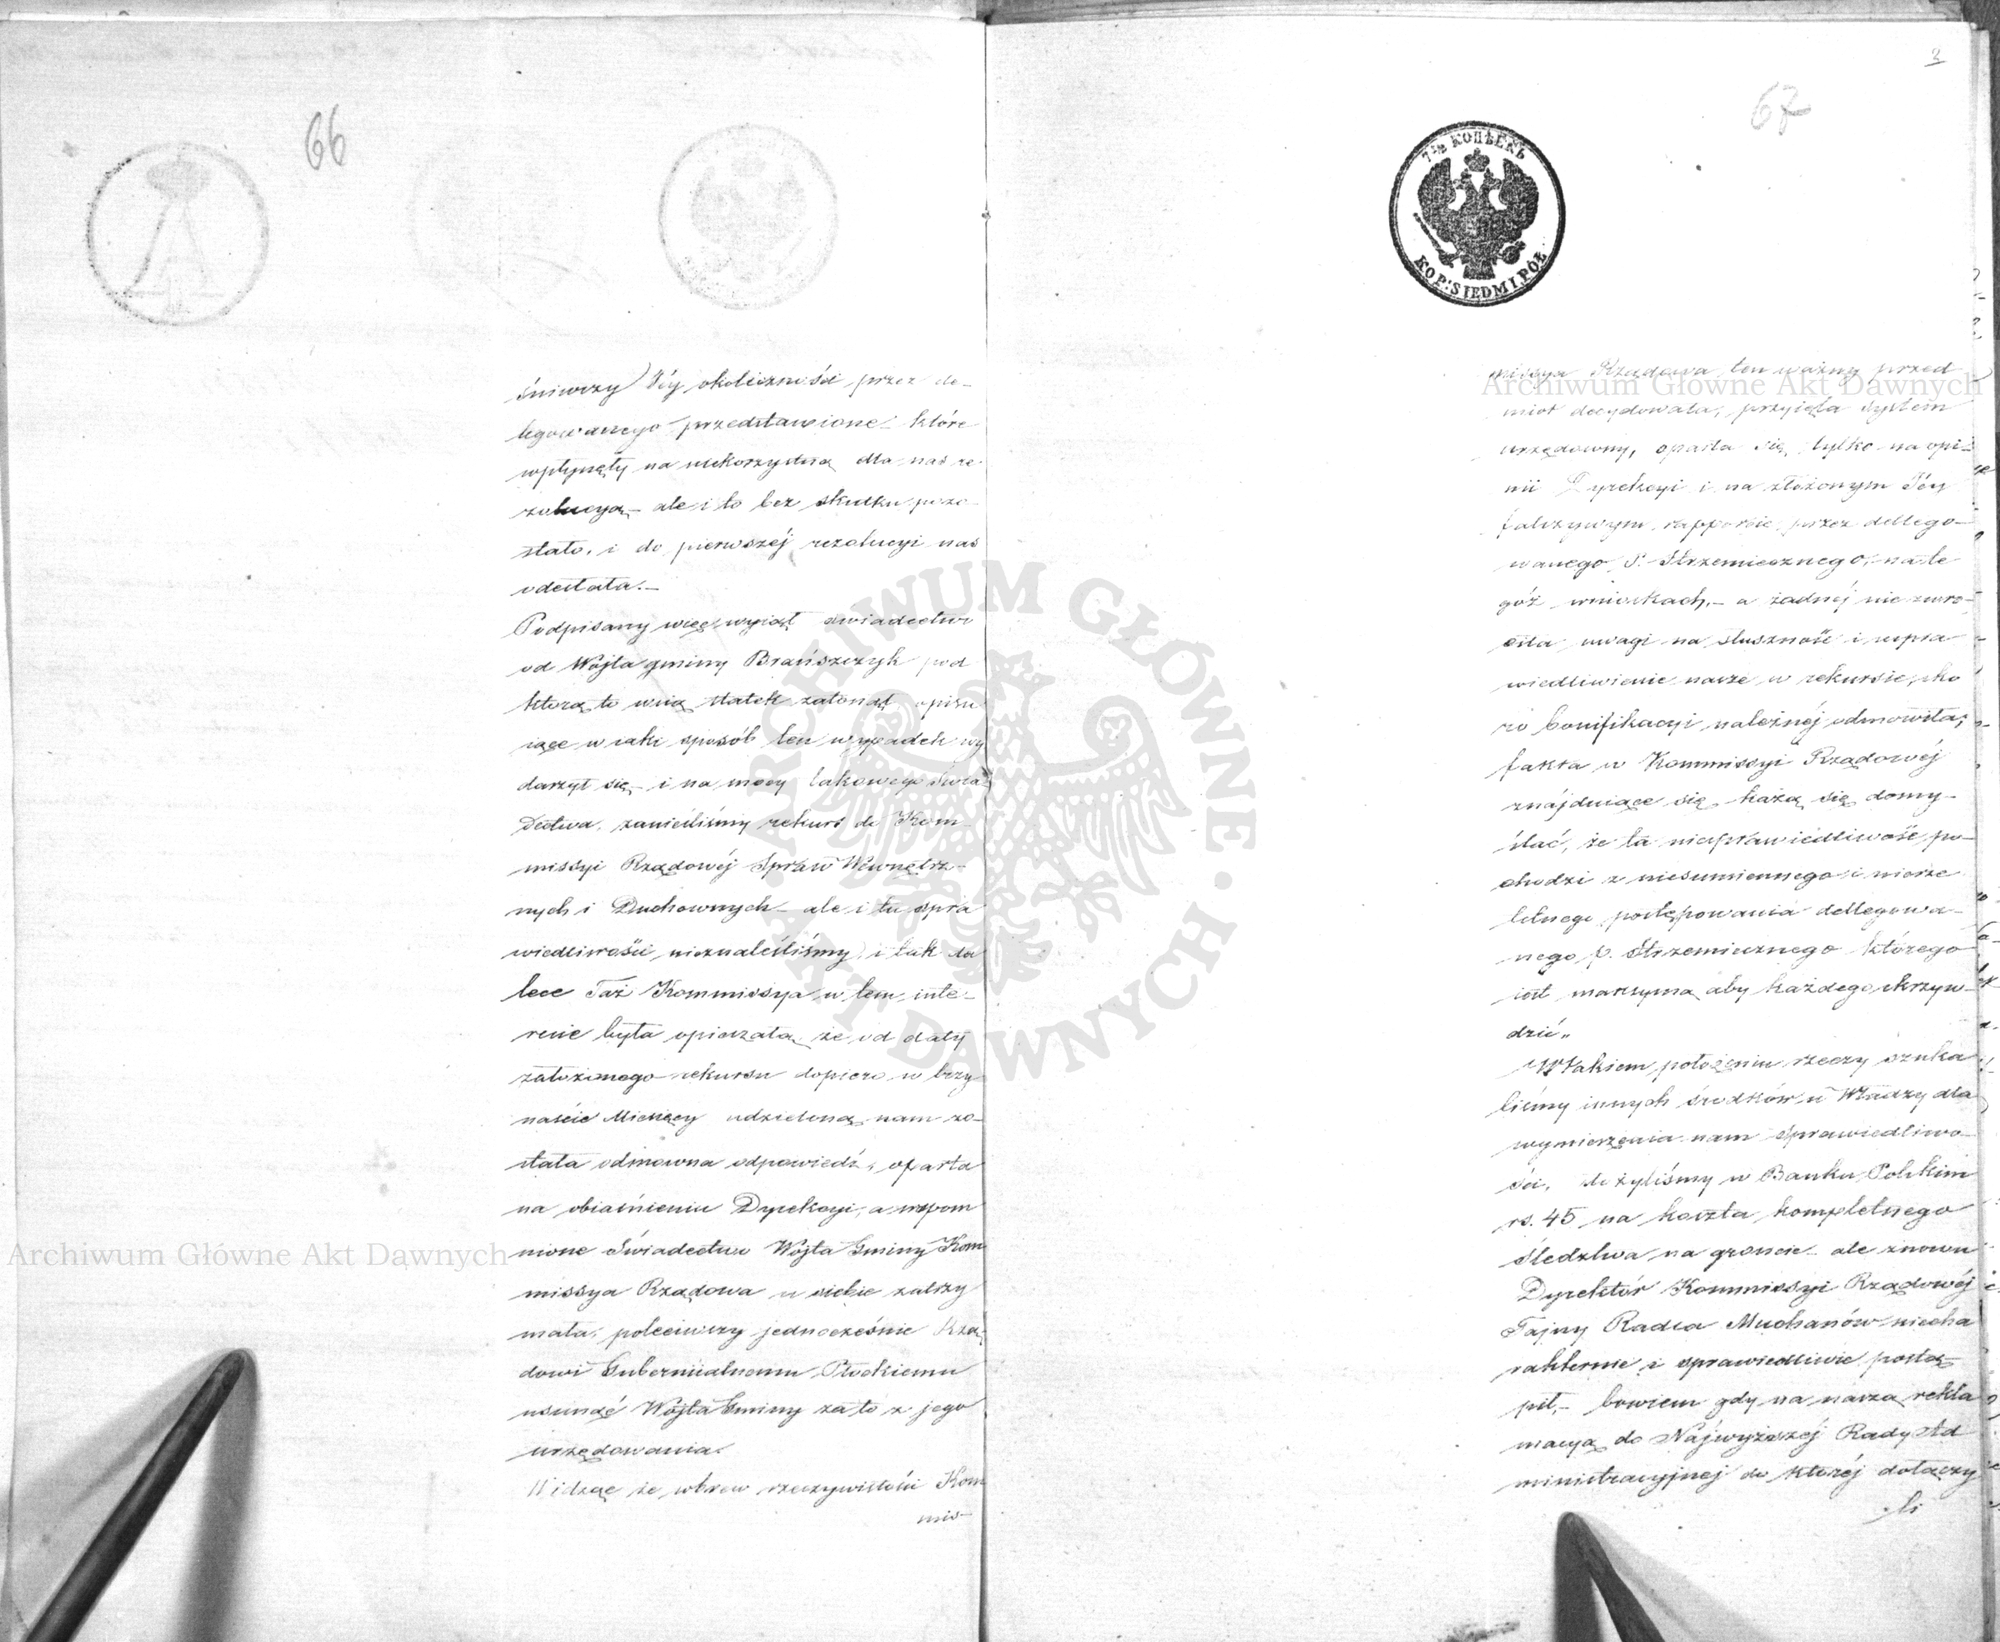 66
śniwszy Téy okoliczności przez de-
legowanego przedstawione które
wpłynęły na niekorzystną dla nas re-
zolucyą, ale i to bez skutku pozo-
stało, i do pierwszéj rezolucyi nas
odesłała.
Podpisany więc wyiął świadectwo
od Wójta gminy Brańszczyk pod
którą to wsią statek zatonął opisu
iące w iaki sposób ten wypadek wy
darzył się, i na mocy takowego świa-
dectwa, zanieśliśmy rekurs do Kom-
missyi Rządowéj Spraw Wewnętrz-
nych i Duchownych - ale i tu spra
wiedliwości nieznaleśliśmy, i tak da
lece Taż Kommissya w tem inte-
resie była opieszałą, że od daty
założonego rekursu dopiero w trzy
naście Miesięcy udzieloną nam zo-
stała odmowna odpowiedź, oparta
na obiaśnieniu Dyrekcyi, a wspom
nione Świadectwo Wójta Gminy Kom
missya Rządowa u siebie zatrzy
mała, poleciwszy jednocześnie Rzą
dowi Gubernialnemu Płockiemu
usunąć Wójta Gminy za to z jego
urzędowania.
Widząc że wbrew rzeczywistości Kom
mis-
2
67
7 1/2 КОПѢЕКЪ
KOP: SIEDM I PÓŁ
missya Rządowa ten ważny przed
miot decydowała, przyięła system
urzędowny, oparła się tylko na opi-
nii Dyrekcyi i na złożonym Téy
fałszywym rapporcie przez delego-
wanego P. Strzemiecznego, na te
góż wnioskach, - a żadnéj nie zwró-
ciła uwagi na słuszność i uspra
wiedliwienie nasze w rekursie, sko
ro bonifikacyi należnéj odmówiła;
fakta w Kommissyi Rządowéj
znajduiące się, każą się domy-
ślać, że ta niesprawiedliwość po-
chodzi z niesumiennego i nierze
telnego postępowania dellegowa-
nego p. Strzemiecznego którego
iest maxymą aby każdego skrzyw-
dzić.
W takiem położeniu rzeczy szuka
liśmy innych środków u Władzy dla
wymierzenia nam Sprawiedliwo-
ści, złożyliśmy w Banku Polskim
rs. 45 na koszta kompletnego
śledztwa na gruncie - ale znowu
Dyrektór Kommissyi Rządowéj
Tajny Radca Muchanów niecha
rakternie i sprawiedliwie postą-
pił, - bowiem gdy na naszą rekla
macyą do Najwyższéj Rady Ad
ministracyjnej do któréj dołączy
li
Archiwum Główne Akt Dawnych
Archiwum Główne Akt Dawnych
ARCHIWUM GŁÓWNE · AKT DAWNYCH ·